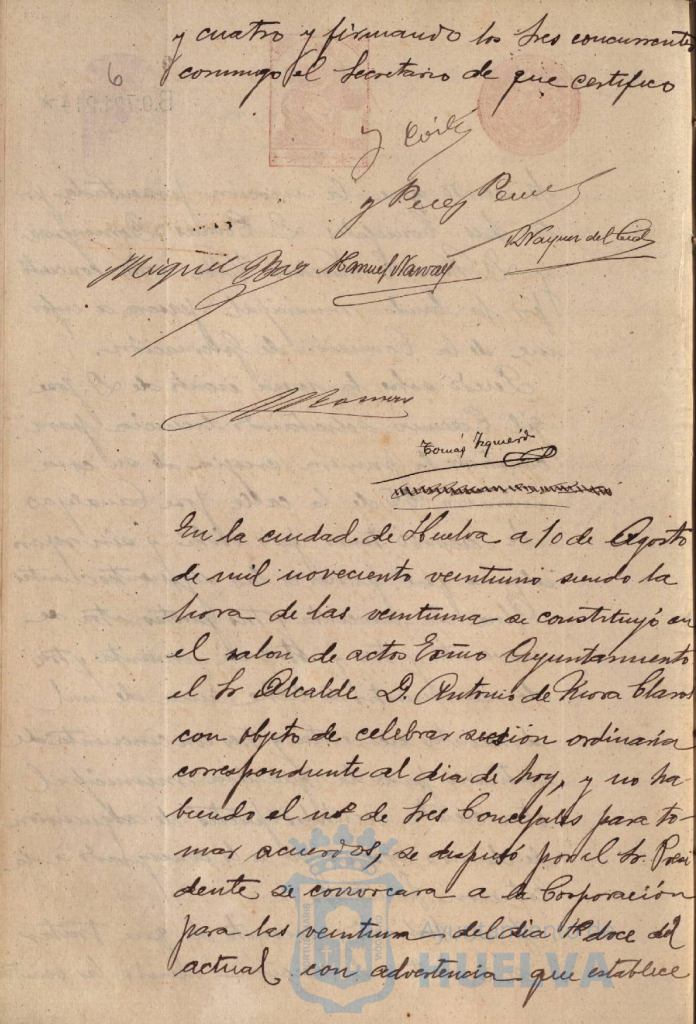 y cuatro y firmando los Sres concurrentes
6
conmigo el Secretario de que certifico
y Perez
Miguel Baz Manuel Narvaez
Vazquez del
Tomás Izquierdo
En la ciudad de Huelva a 10 de Agosto
de mil noveciento veintiuno siendo la
hora de las veintiuna se constituyó en
el salon de actos Exmo Ayuntamiento
el Sr Alcalde D. Antonio de Mora Claros
con objeto de celebrar sesión ordinaria
correspondiente al dia de hoy, y no ha-
biendo el no de Sres Concejales para to-
mar acuerdos, se dispusó por el Sr. Presi
dente se convocara a la Corporación
para las veintiuna del dia doce del
actual con advertencia que establece
HUELVA